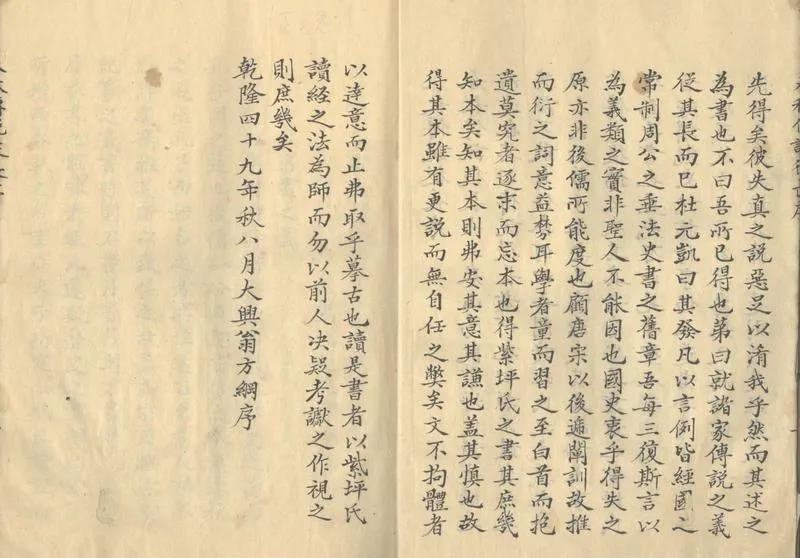 先得矣彼失真之説惡足以淆我乎然而其述之
為書也不曰吾所已得也苐曰就諸家傳説之義
從其長而已杜元凱曰其發凡以言例皆經國之
常制周公之垂法史書之舊章吾每三復斯言以
為義類之實非聖人不能因也國史衷乎得失之
原亦非後儒所能度也顧唐宗以後遞闡訓故推
而衍之詞意益棼耳學者童而習之至白首而抱
遺莫究者逐末而忘本也得紫坪氏之書其庶幾
知本矣知其本則弗安其意其謙也盖其慎也故
得其本雖有更説而無自任之獘矣文不拘體者
以達意而止弗取乎摹古也讀是書者以紫坪氏
讀經之法為師而勿以前人决疑考讞之作視之
則庶幾矣
乾隆四十九年秋八月大興翁方綱序